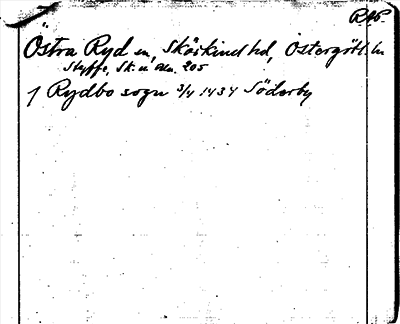 RAp.
Östra Ryd sn, Skärkind hd, Östergötl. ln
Styffe, Sk. u. Un. 205
1 Rydbo sogn 3/4 1434 Söderby